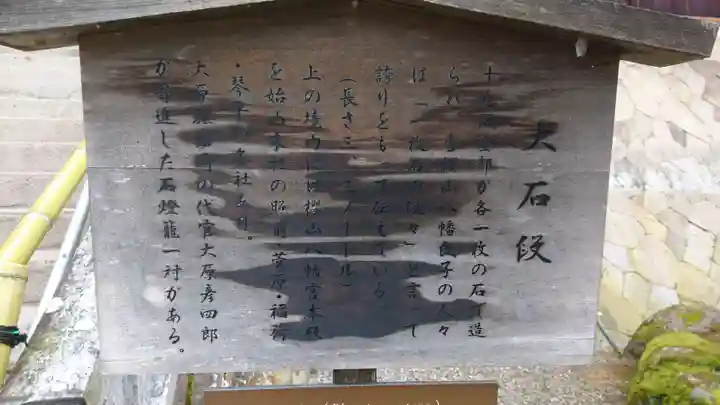 大石段
十 段全部が各一枚の石で造
られ 桜山八幡氏子の人々
は「一枚石の段々」と言って
誇りをもって伝えている
(長さ三 メートル)
上の境内には桜山八幡宮本殿
を始め末社の照前・菅原・稲荷
・琴平の々社あり。
大原 の代官大原彦四郎
が寄進した石燈籠一対がある。